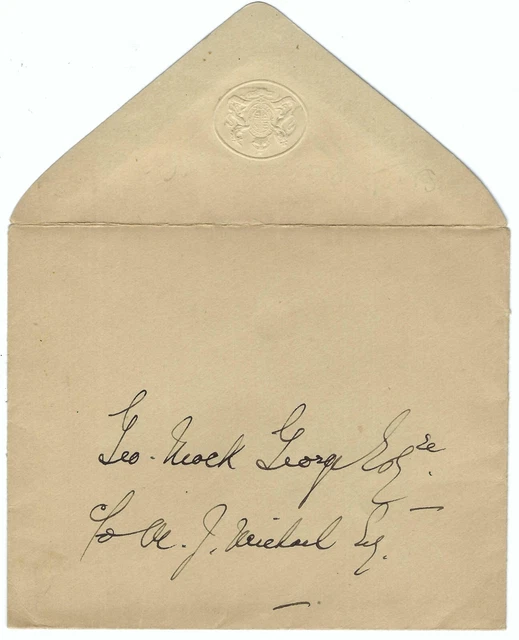 Geo. Mock George Esqre.
c/o M. J. Michael Esq.